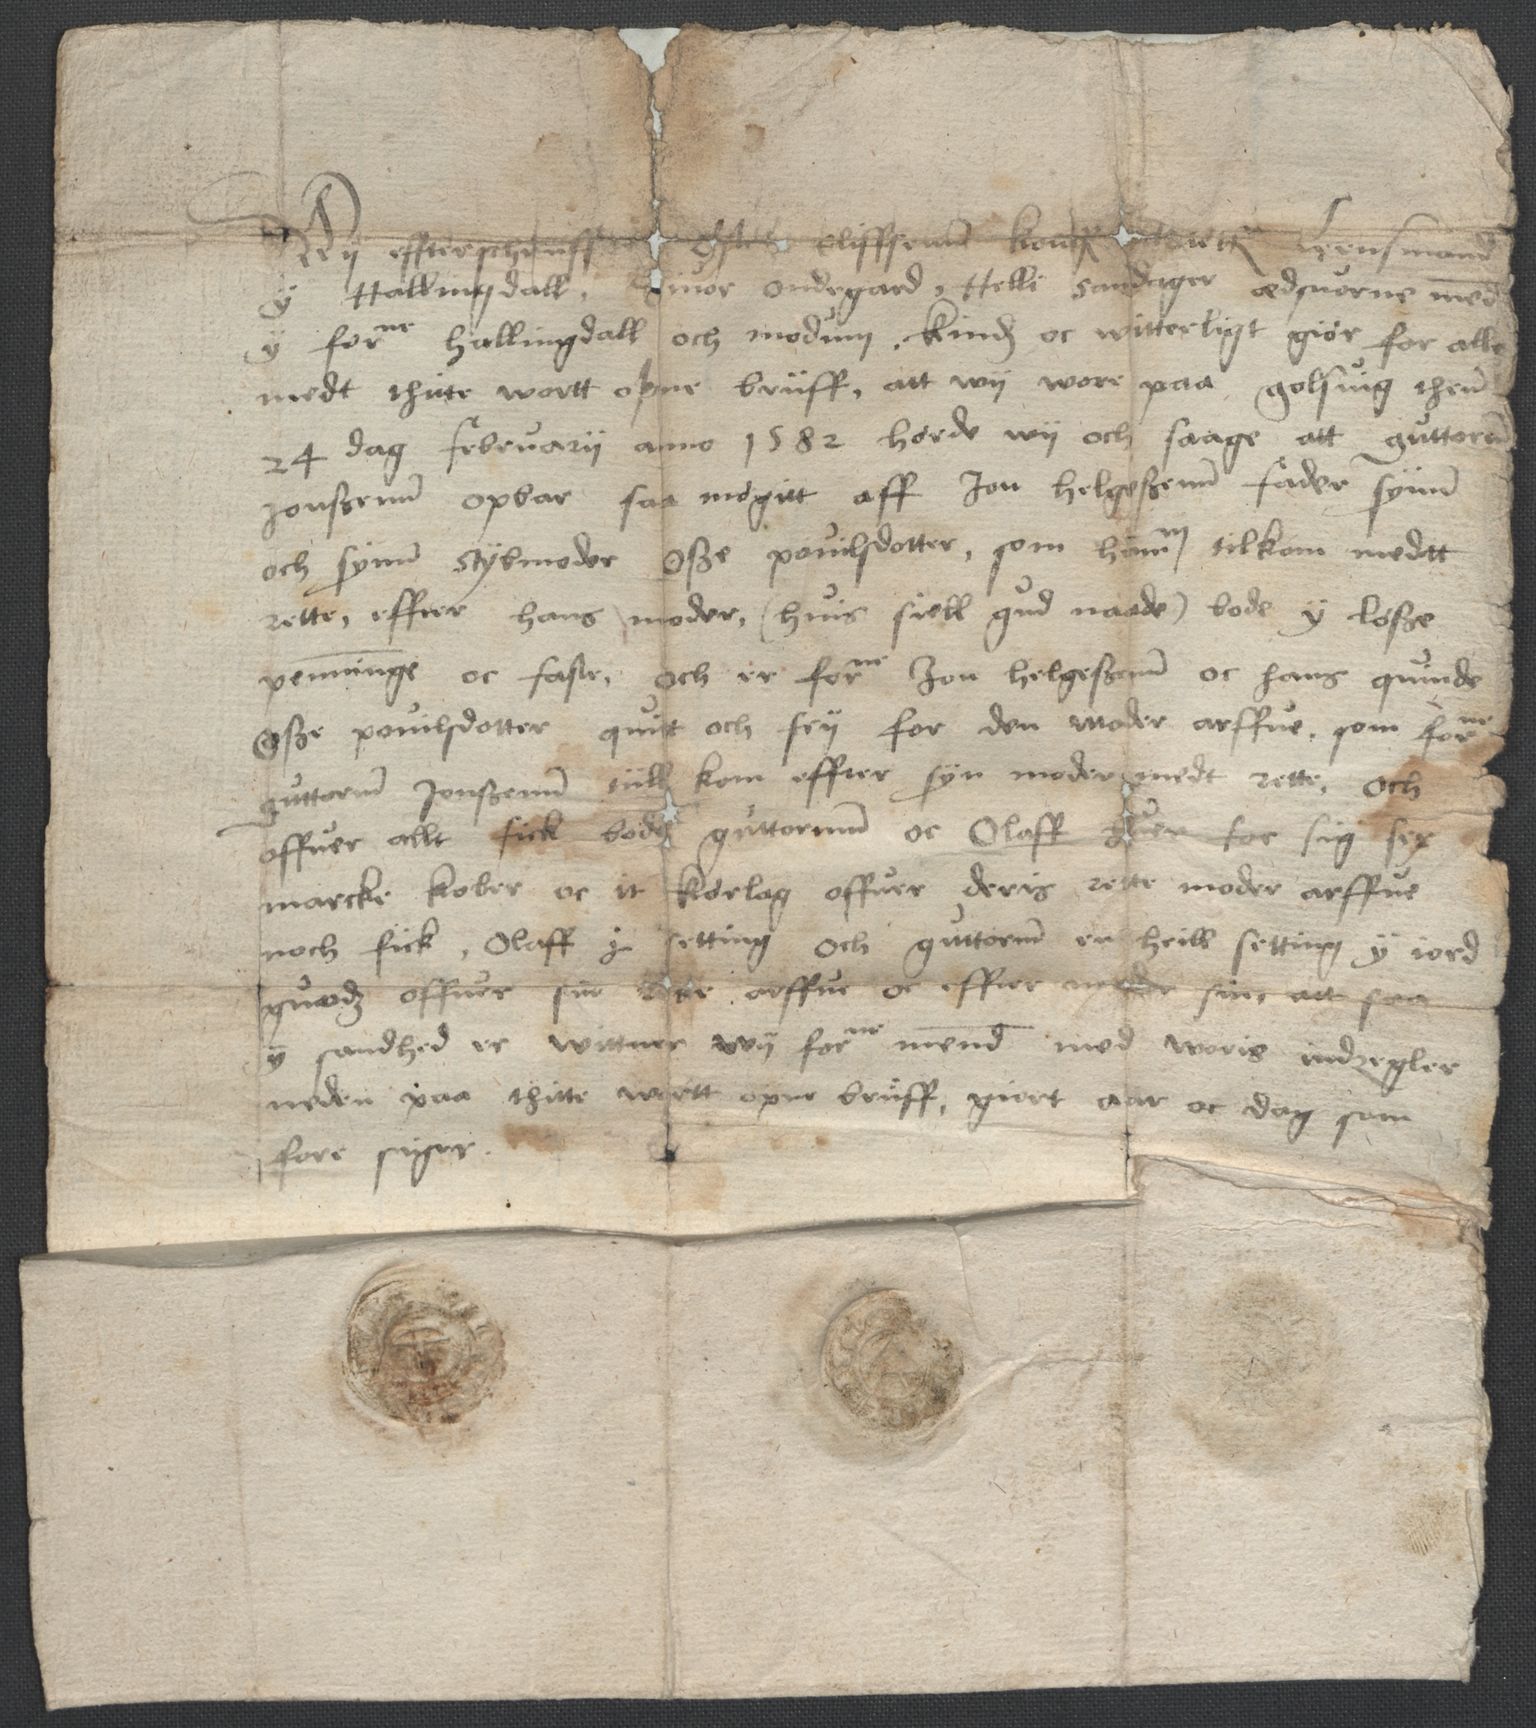 Wij effterschriffne eliffsenn kong lensmand
ÿ Hallingdall, Ondegard, Helli Sandager edsuorne mend
ÿ forne hallingdall och modum, kindz oc witterligt giør for alle
medt thitte wortt opne brüff, att wij wore paa golsuig thenn
24 dag februarij anno 1582 hørde wij och saage att guttorm
Jonßenn opbar saa mogitt aff Jon helgeßenn fader synn
och synn stÿbmoder Oße pouilsdotter, som hannm tilkom medtt
rette, effter hans moder, (huis siell gud naade) bode ÿ løße
penninge oc faste, och er forne Jon helgeßenn oc hans quinde
Oße pouilsdotter quitt och frij for den moder arffue, som forne
guttorm Jonßenn till kom effter sÿn moder medt rette, och
offuer allt fick bode guttorm oc Olaff huer for sig sex
marcke kober oc it kørlag offuer deris rette moder arffue
noch fick, Olaff setting och guttorm en heill setting ÿ iord
guodz offuer sin rette arffue oc effter moder sin, att saa
ÿ sandhed er wittner wij forne mend med woris indzegler
neden paa thitte wortt opne brüff, giort aar oc dag som
fore siger.